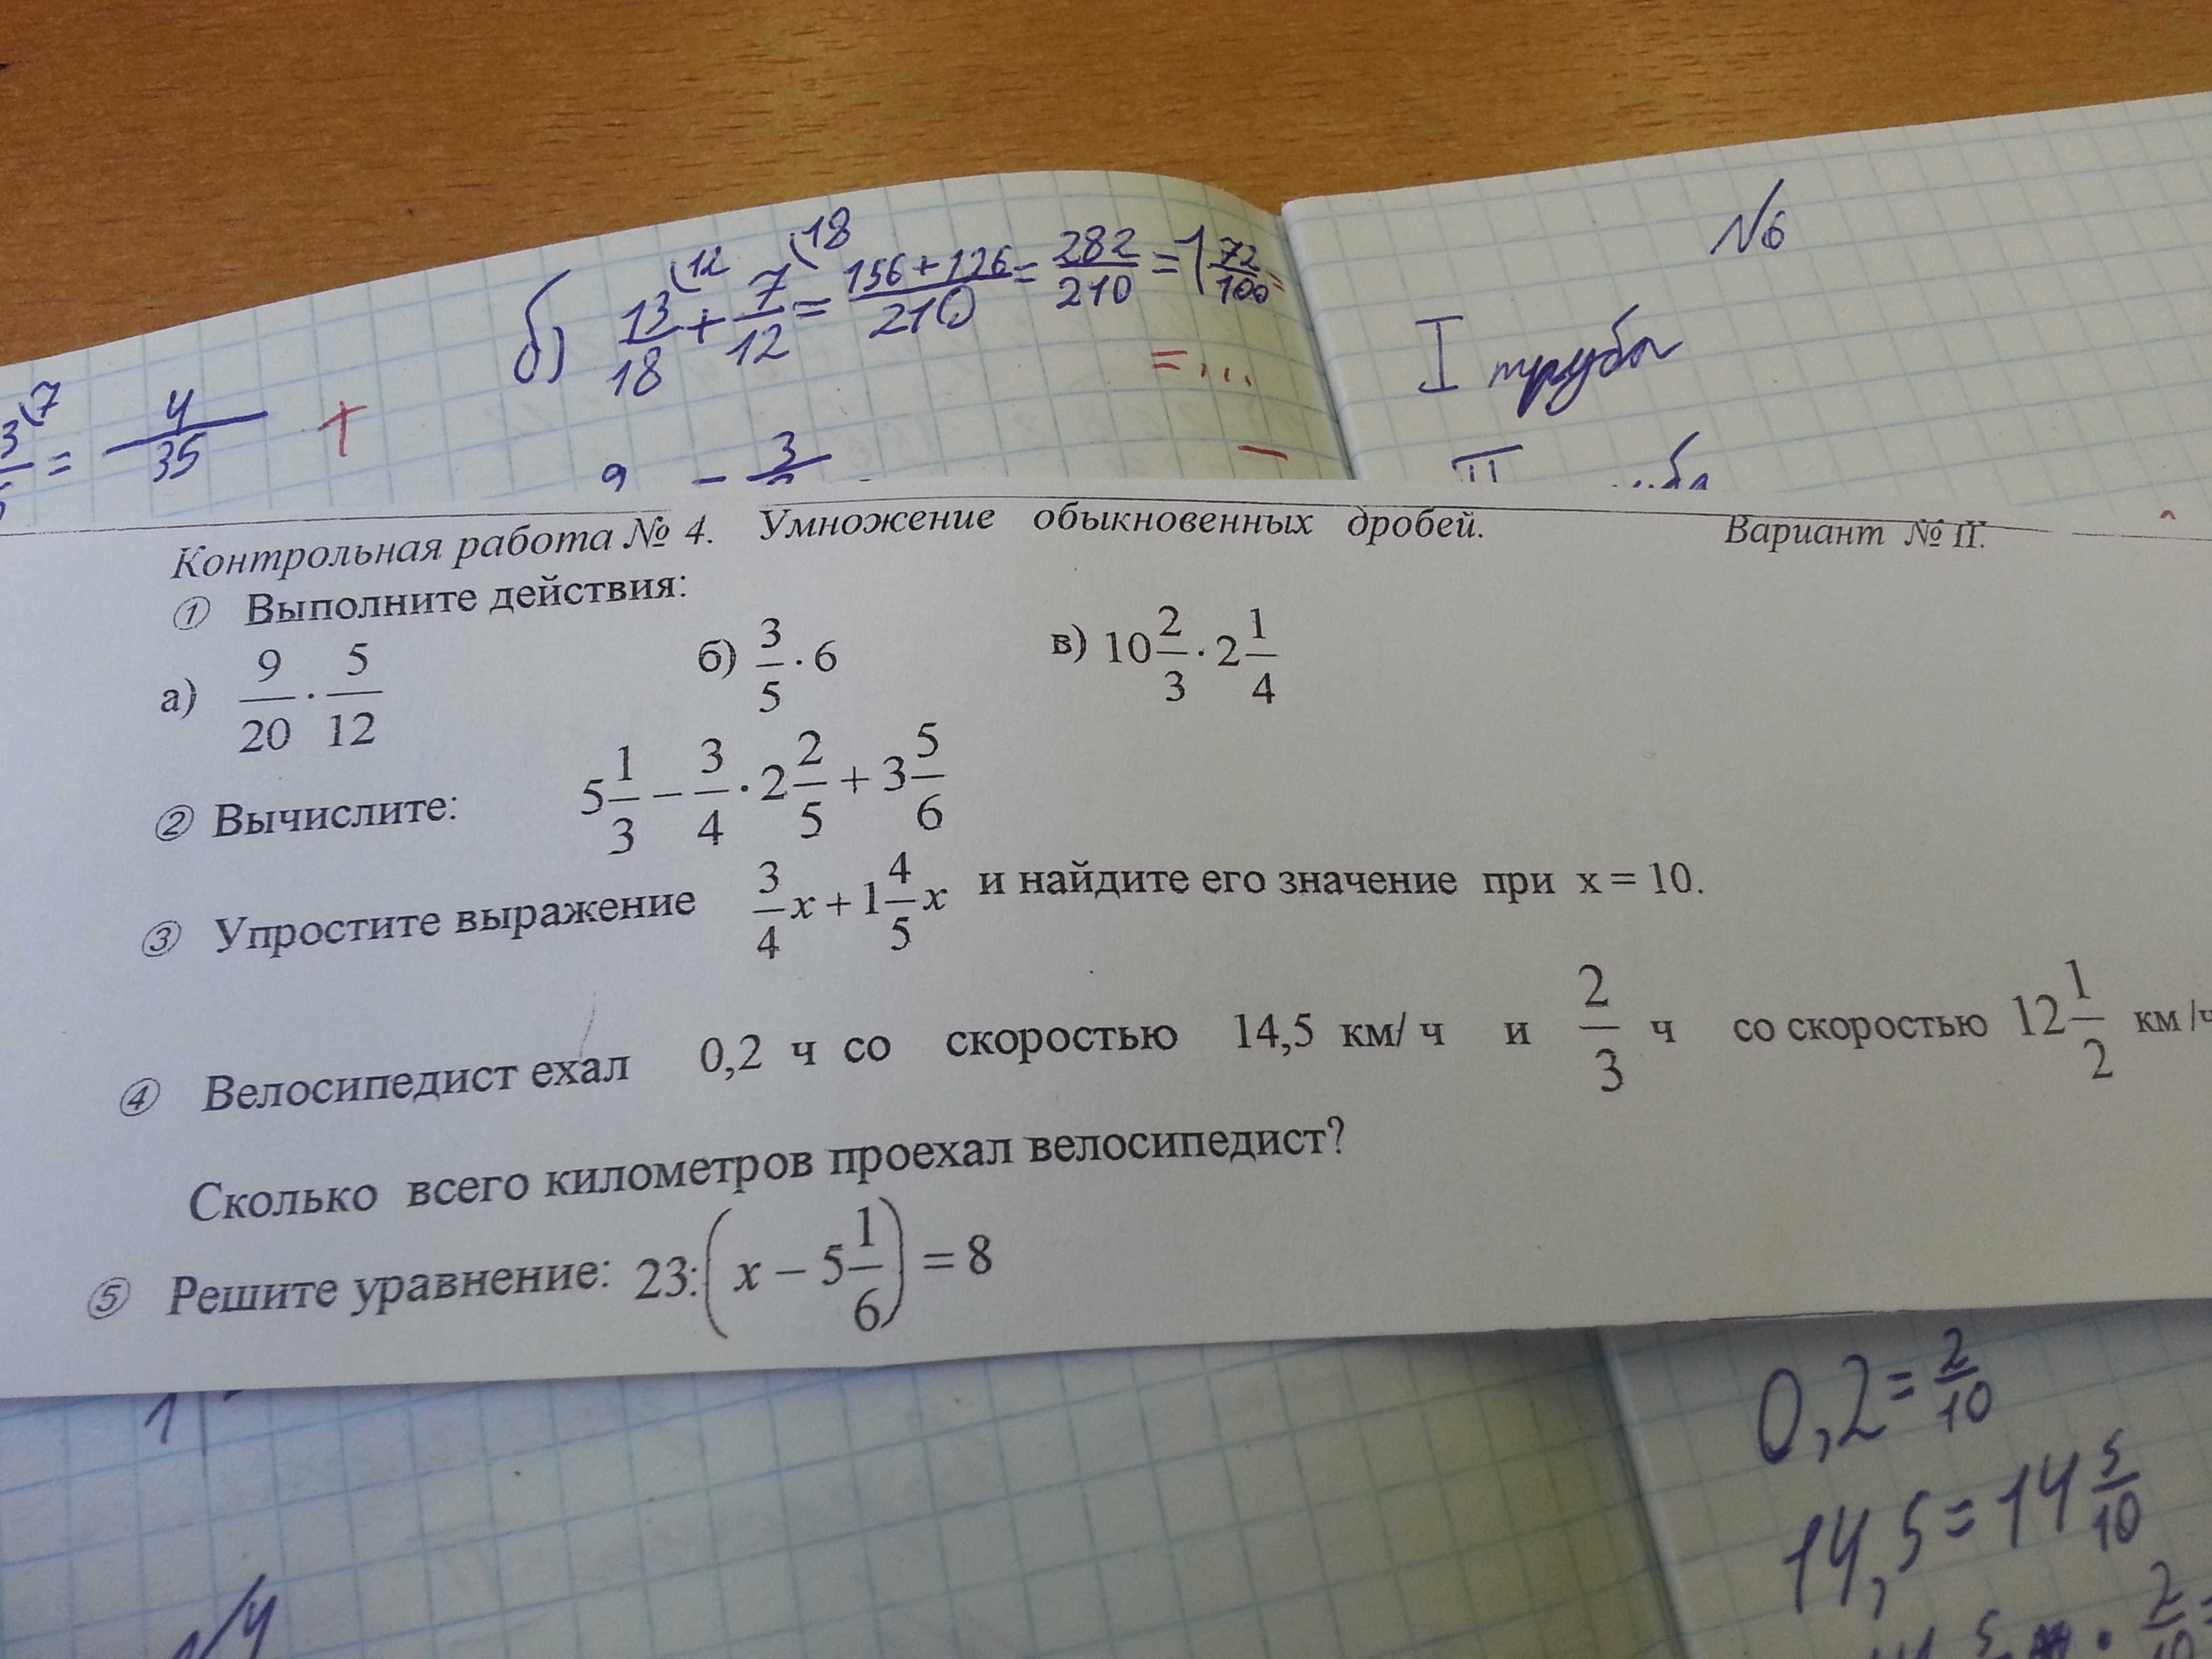 б) 13/18 (12 + 7/12 (18 = 156+126/210 = 282/210 = 1 72/100 =
= ...
№6
I труба
3 (7 = 4/35 +
9 - 3
II
Контрольная работа № 4. Умножение обыкновенных дробей. Вариант № II.
① Выполните действия:
а) 9/20 · 5/12 б) 3/5 · 6 в) 10 2/3 · 2 1/4
② Вычислите: 5 1/3 − 3/4 · 2 2/5 + 3 5/6
③ Упростите выражение 3/4 x + 1 4/5 x и найдите его значение при x = 10.
④ Велосипедист ехал 0,2 ч со скоростью 14,5 км/ ч и 2/3 ч со скоростью 12 1/2 км /ч
Сколько всего километров проехал велосипедист?
⑤ Решите уравнение: 23:(x − 5 1/6) = 8
0,2 = 2/10
14,5 = 14 5/10
· 2/10 =
№4